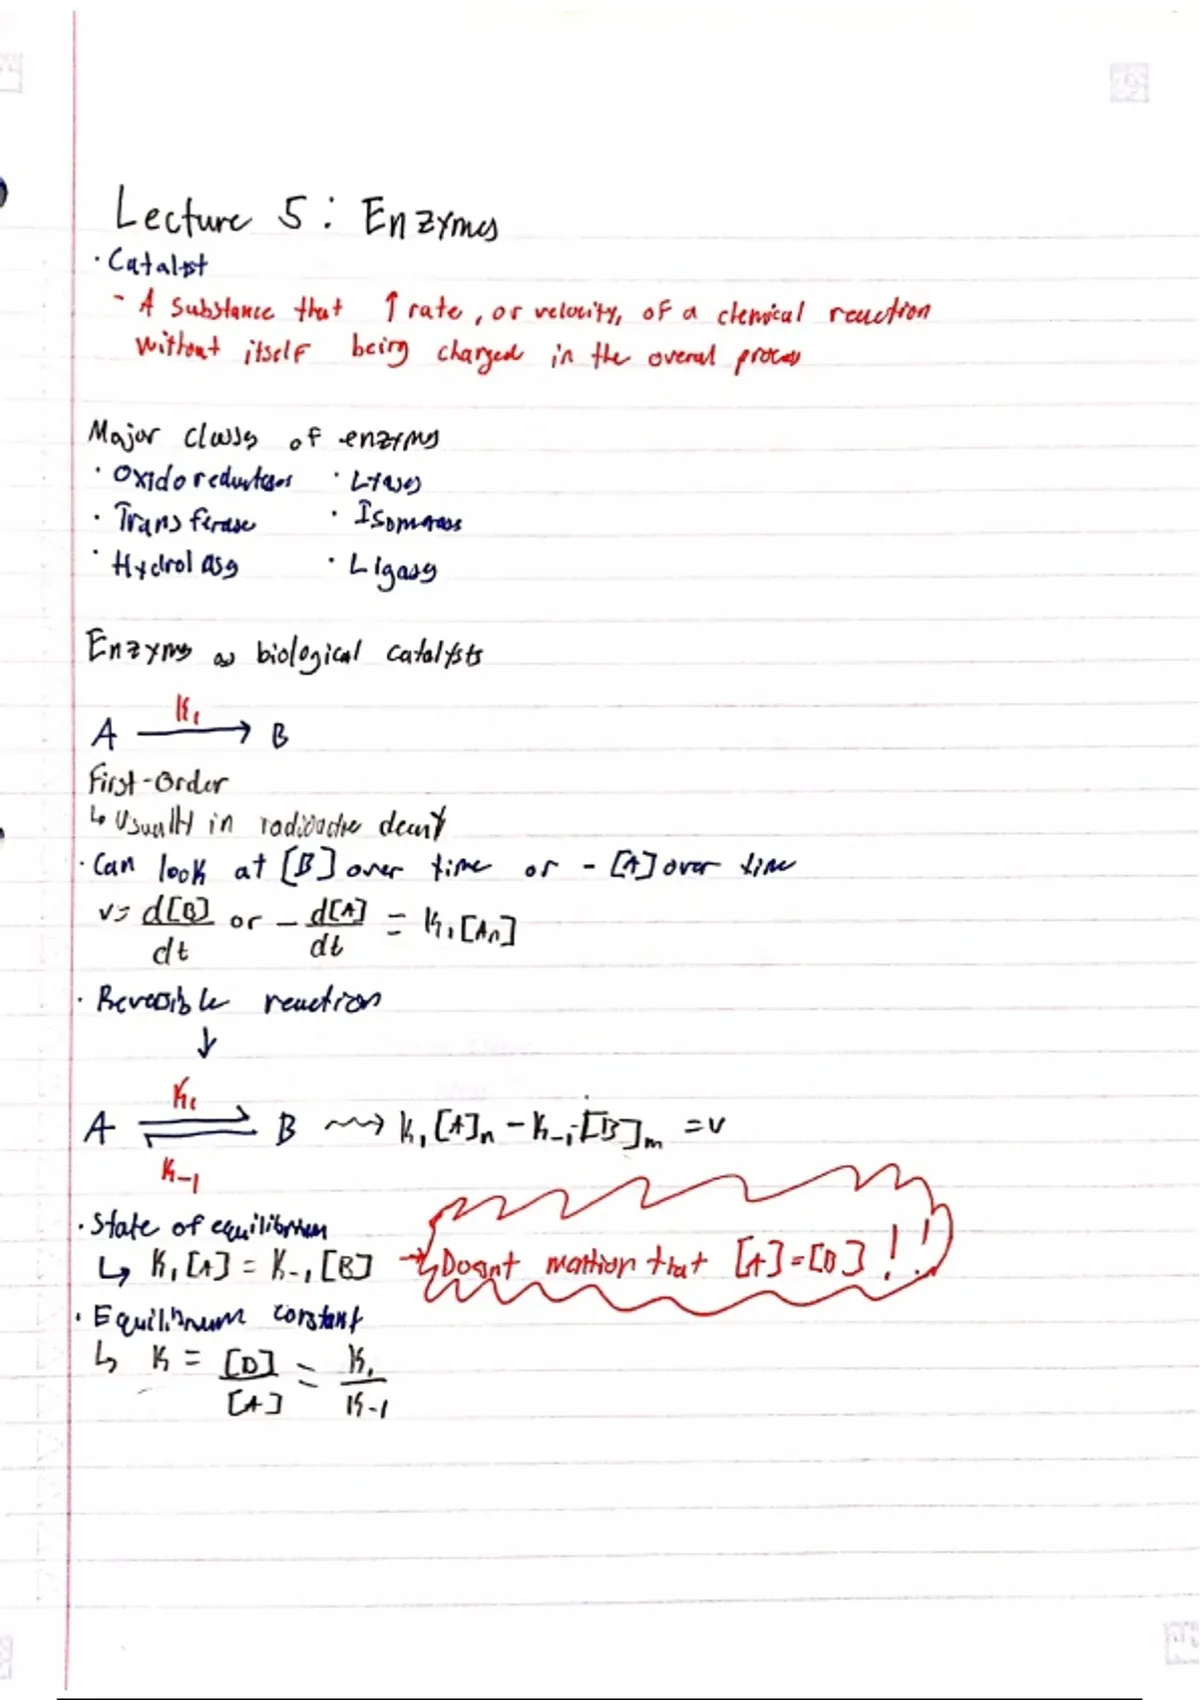 Lecture 5: Enzymes
· Catalyst
- A substance that ↑ rate, or velocity, of a chemical reaction
without itself being changed in the overall process
Major classes of enzymes
· Oxidoreductases · Lyases
· Transferase · Isomerases
· Hydrolases · Ligases
Enzymes as biological catalysts
K₁
A ⟶ B
First-Order
↳ Usually in radioactive decay
· Can look at [B] over time or - [A] over time
v = d[B]/dt or - d[A]/dt = K₁[An]
· Reversible reaction
↓
K₁
A ⇌ B ⇝ K₁[A]n - K₋₁[B]m = v
K-1
· State of equilibrium
↳ K₁[A] = K₋₁[B] → Doesnt that [A]=[B]!!
· Equilibrium constant
↳ K = [B]/[A] = K₁/K-1